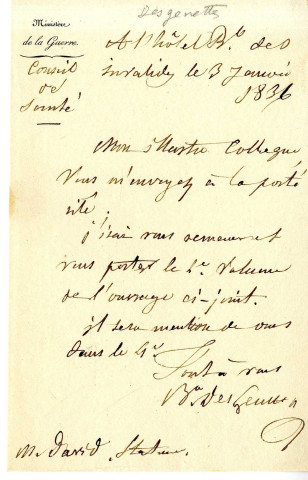 Desgenettes
Ministère
de la Guerre.
Conseil
de
Santé
A l'hôtel R.l des
invalides le 3 Janvier
1836
Mon illustre Collegue
Vous m'envoyez à la
j'irai vous remercier et
vous porter le 2e. volume
de l'ouvrage ci-joint.
il sera mention de vous
dans le 4e.
Tout à vous
B.on Desgenettes
M. David,